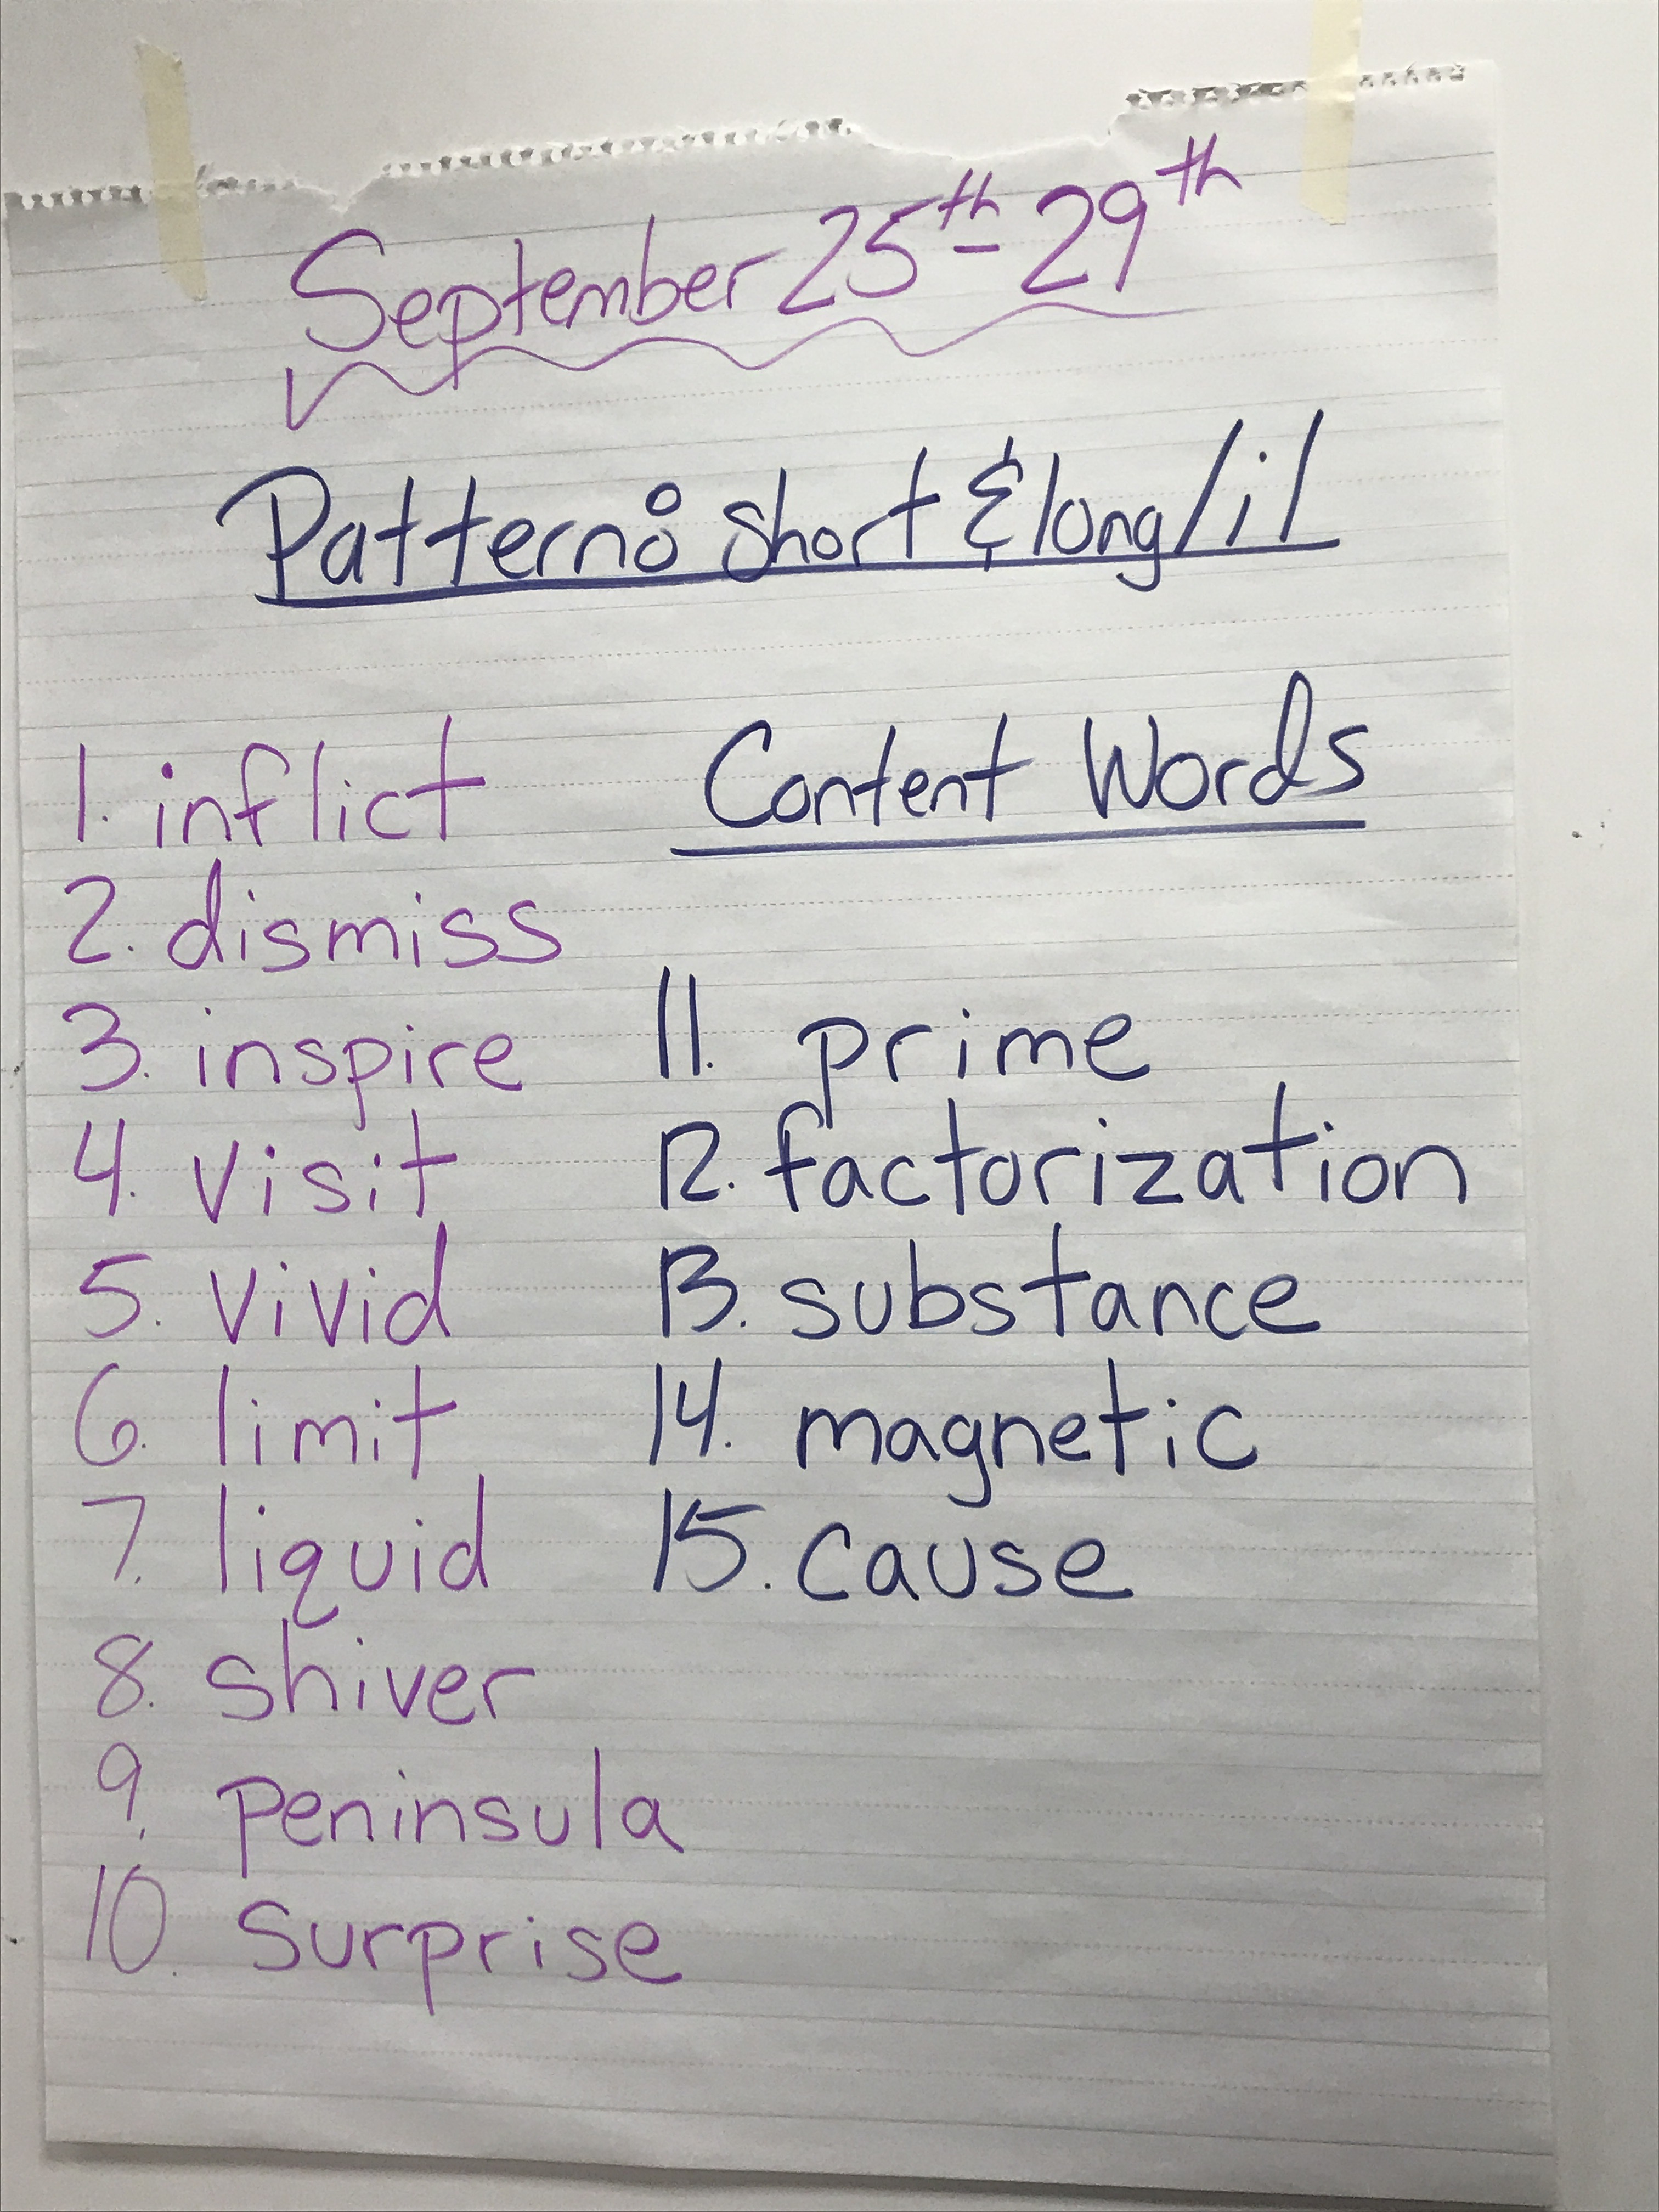 September 25th - 29th
Pattern: Short & long /i/
1. inflict
2. dismiss
3. inspire
4. visit
5. vivid
6. limit
7. liquid
8. shiver
9. peninsula
10. surprise
Content Words
11. prime
12. factorization
13. substance
14. magnetic
15. cause